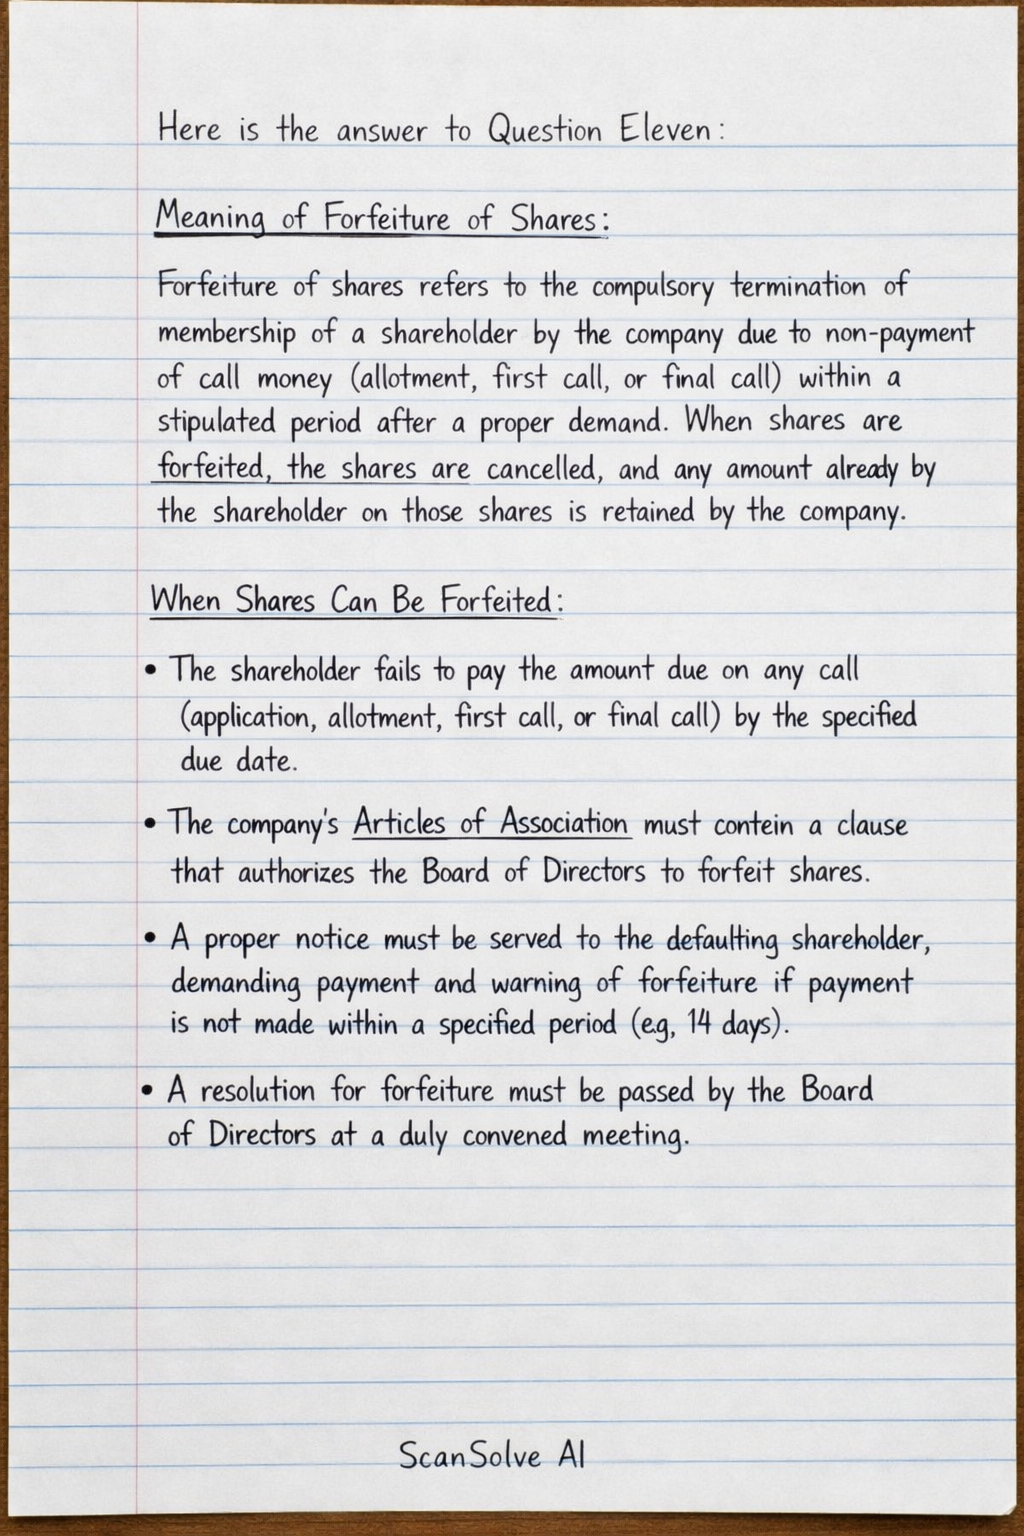 Here is the answer to Question Eleven:
Meaning of Forfeiture of Shares:
Forfeiture of shares refers to the compulsory termination of
membership of a shareholder by the company due to non-payment
of call money (allotment, first call, or final call) within a
stipulated period after a proper demand. When shares are
forfeited, the shares are cancelled, and any amount already by
the shareholder on those shares is retained by the company.
When Shares Can Be Forfeited:
• The shareholder fails to pay the amount due on any call
(application, allotment, first call, or final call) by the specified
due date.
• The company's Articles of Association must contein a clause
that authorizes the Board of Directors to forfeit shares.
• A proper notice must be served to the defaulting shareholder,
demanding payment and warning of forfeiture if payment
is not made within a specified period (e.g, 14 days).
• A resolution for forfeiture must be passed by the Board
of Directors at a duly convened meeting.
ScanSolve AI